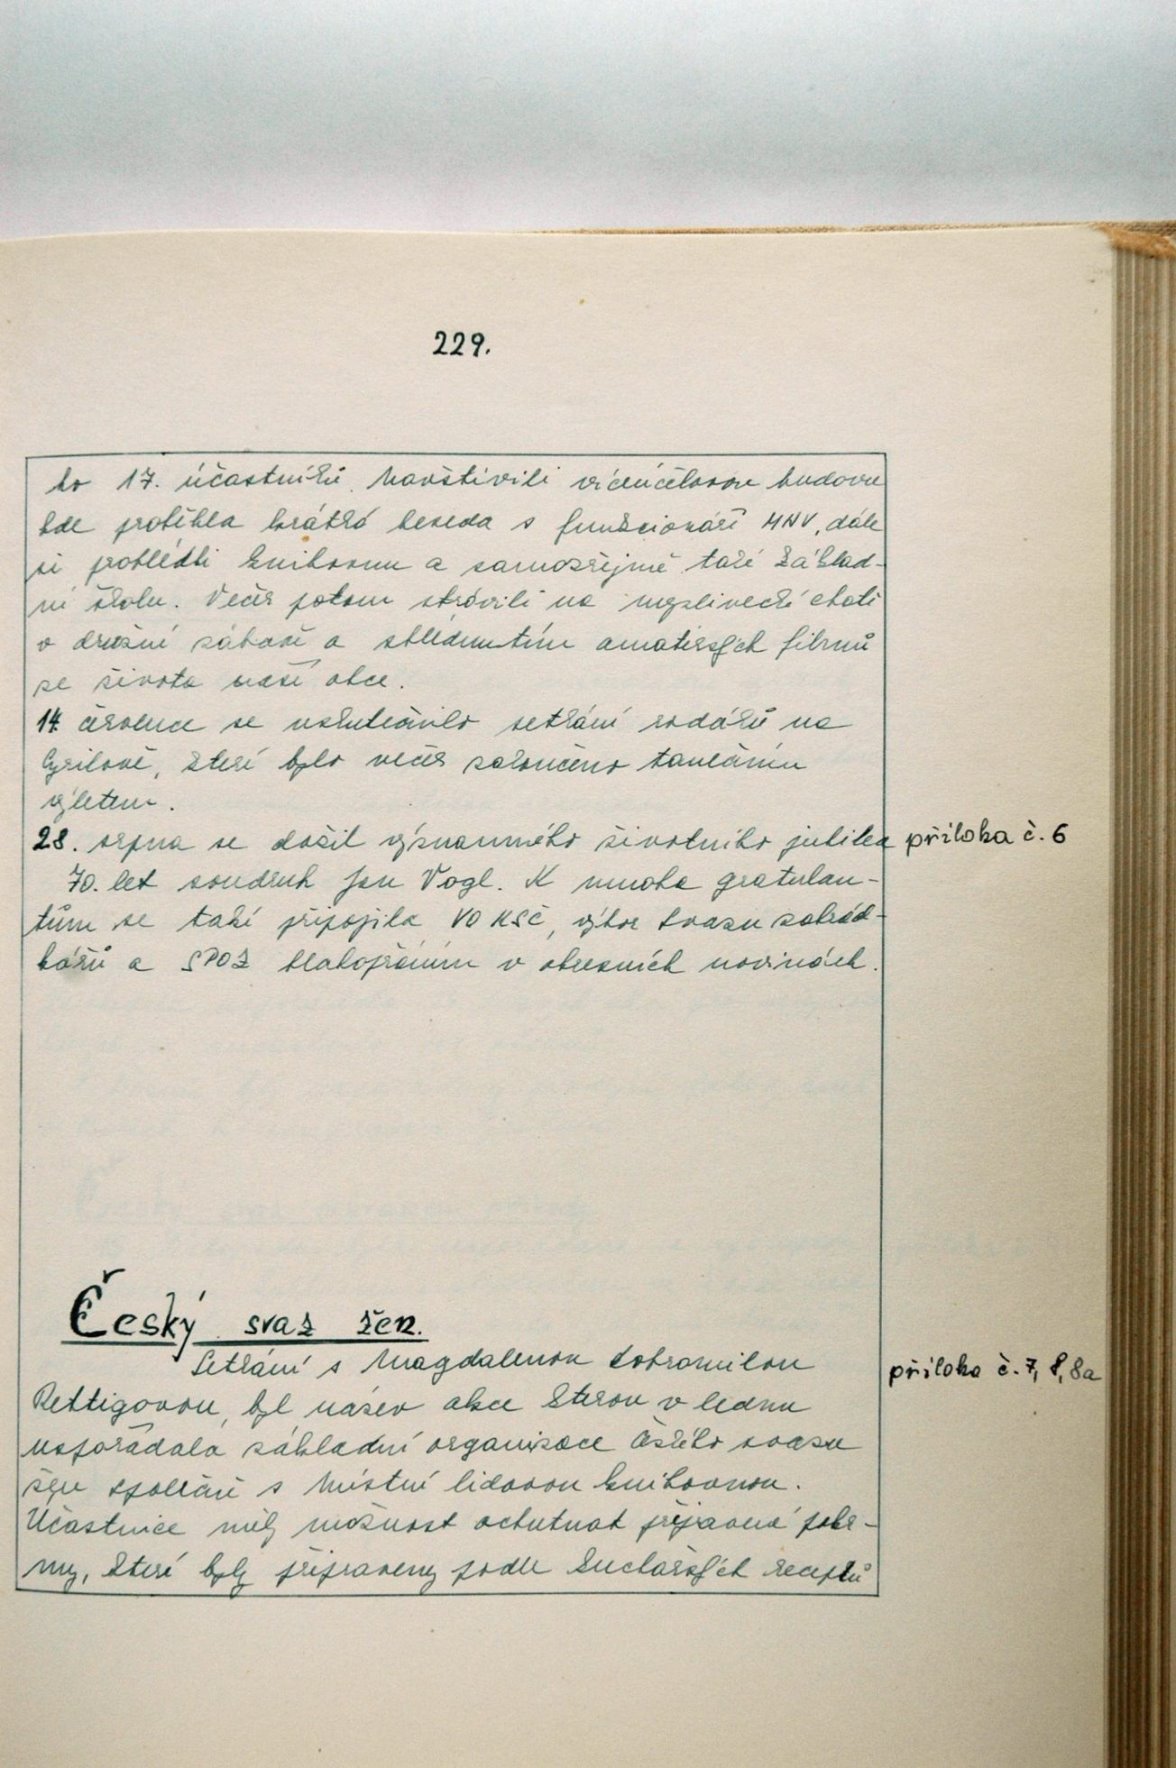 229.
ho 17. účastníků. Navštívili víceúčelovou budovu
kde proběhla krátká beseda s funkcionáři MNV, dále
si prohlédli knihovnu a samozřejmě také základ-
ní školu. Večer potom strávili na myslivecké chatě
v družné zábavě a shlédnutím amatérských filmů
ze života naší obce.
14. července se uskutečnilo setkání rodáků na
Cyrilově, které bylo večer zakončeno tanečním
výletem.
28. srpna se dožil významného životního jubilea
příloha č. 6
70. let soudruh Jan Vogl. K mnoha gratulan-
tům se také připojila VO KSČ, výbor svazu zahrád-
kářů a SPOZ blahopřáním v obecních novinách.
Český svaz žen.
Setkání s Magdalenou Dobromilou
příloha č. 7, 8, 8a
Rettigovou, byl název akce kterou v lednu
uspořádala základní organizace Českého svazu
žen společně s Místní lidovou knihovnou.
Účastnice měly možnost ochutnat připravené pokr-
my, které byly připraveny podle kuchařských receptů